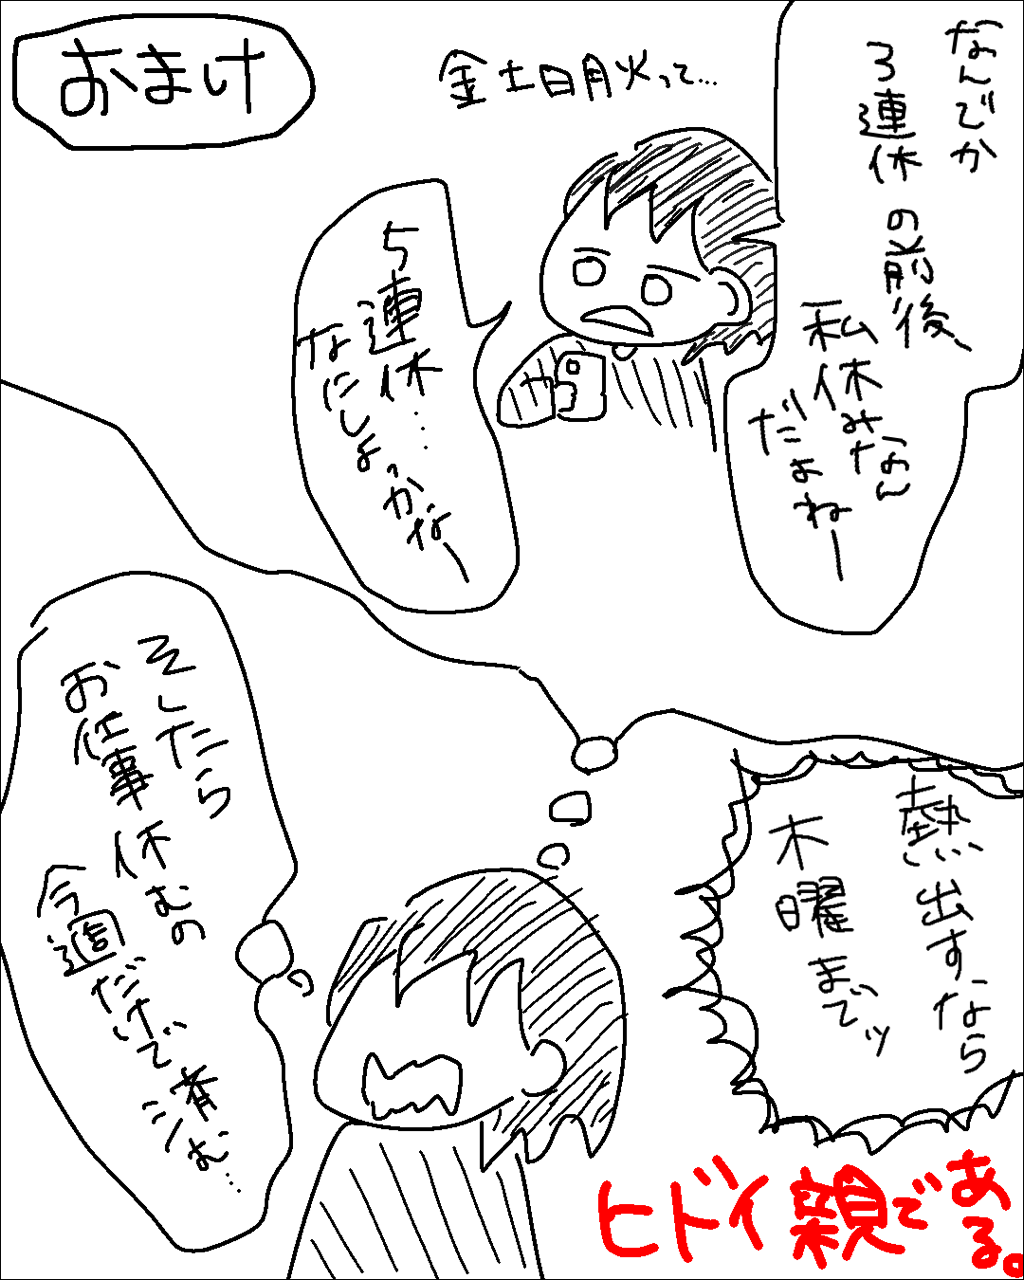 おまけ
なんでか
3連休の前後、
私休みなん
だよねー
金土日月火って…
5連休…
なにしよっかなー
熱出すなら
木曜までッ
そしたら
お仕事休むの
今週だけで済む…
ヒドイ親で
ある。